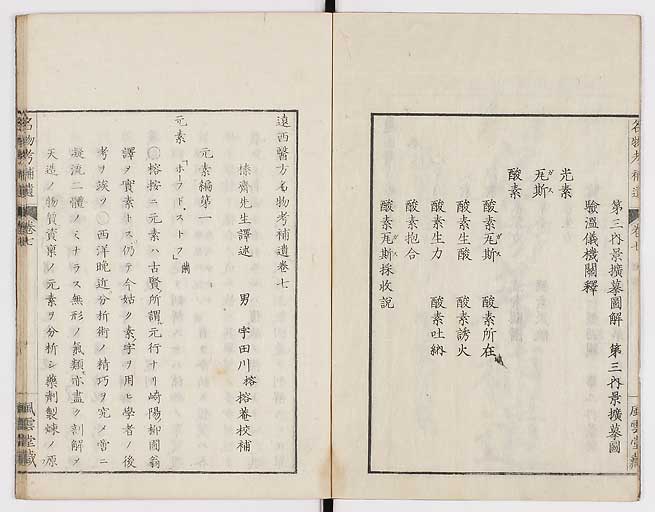 名物考補遺 卷七 風雲堂藏
第三內景擴摹圖解 第三內景擴摹圖
驗溫儀機關釋
光素
瓦斯 ガス
酸素
酸素瓦斯 ガス 酸素所在
酸素生酸 酸素誘火
酸素生力 酸素吐納
酸素抱合
酸素瓦斯採收說 ガス
遠西醫方名物考補遺卷七
榛齋先生譯述 男 宇田川榕 榕菴校補
元素編第一
元素 「ホーフドストフ」蘭
榕按ニ元素ハ古賢所謂元行ナリ崎陽柳圃翁
譯ヲ實素トス仍テ今姑ク素字ヲ用ヒ學者ノ後
考ヲ竢ツ○西洋晩近分析術ノ精巧ヲ究メ啻ニ
凝流二體ノミナラス無形ノ氣類亦盡ク剖解ヲ
天造ノ物質資稟ノ元素ヲ分析シ藥劑製煉ノ原
名物考補遺 卷七 風雲堂藏